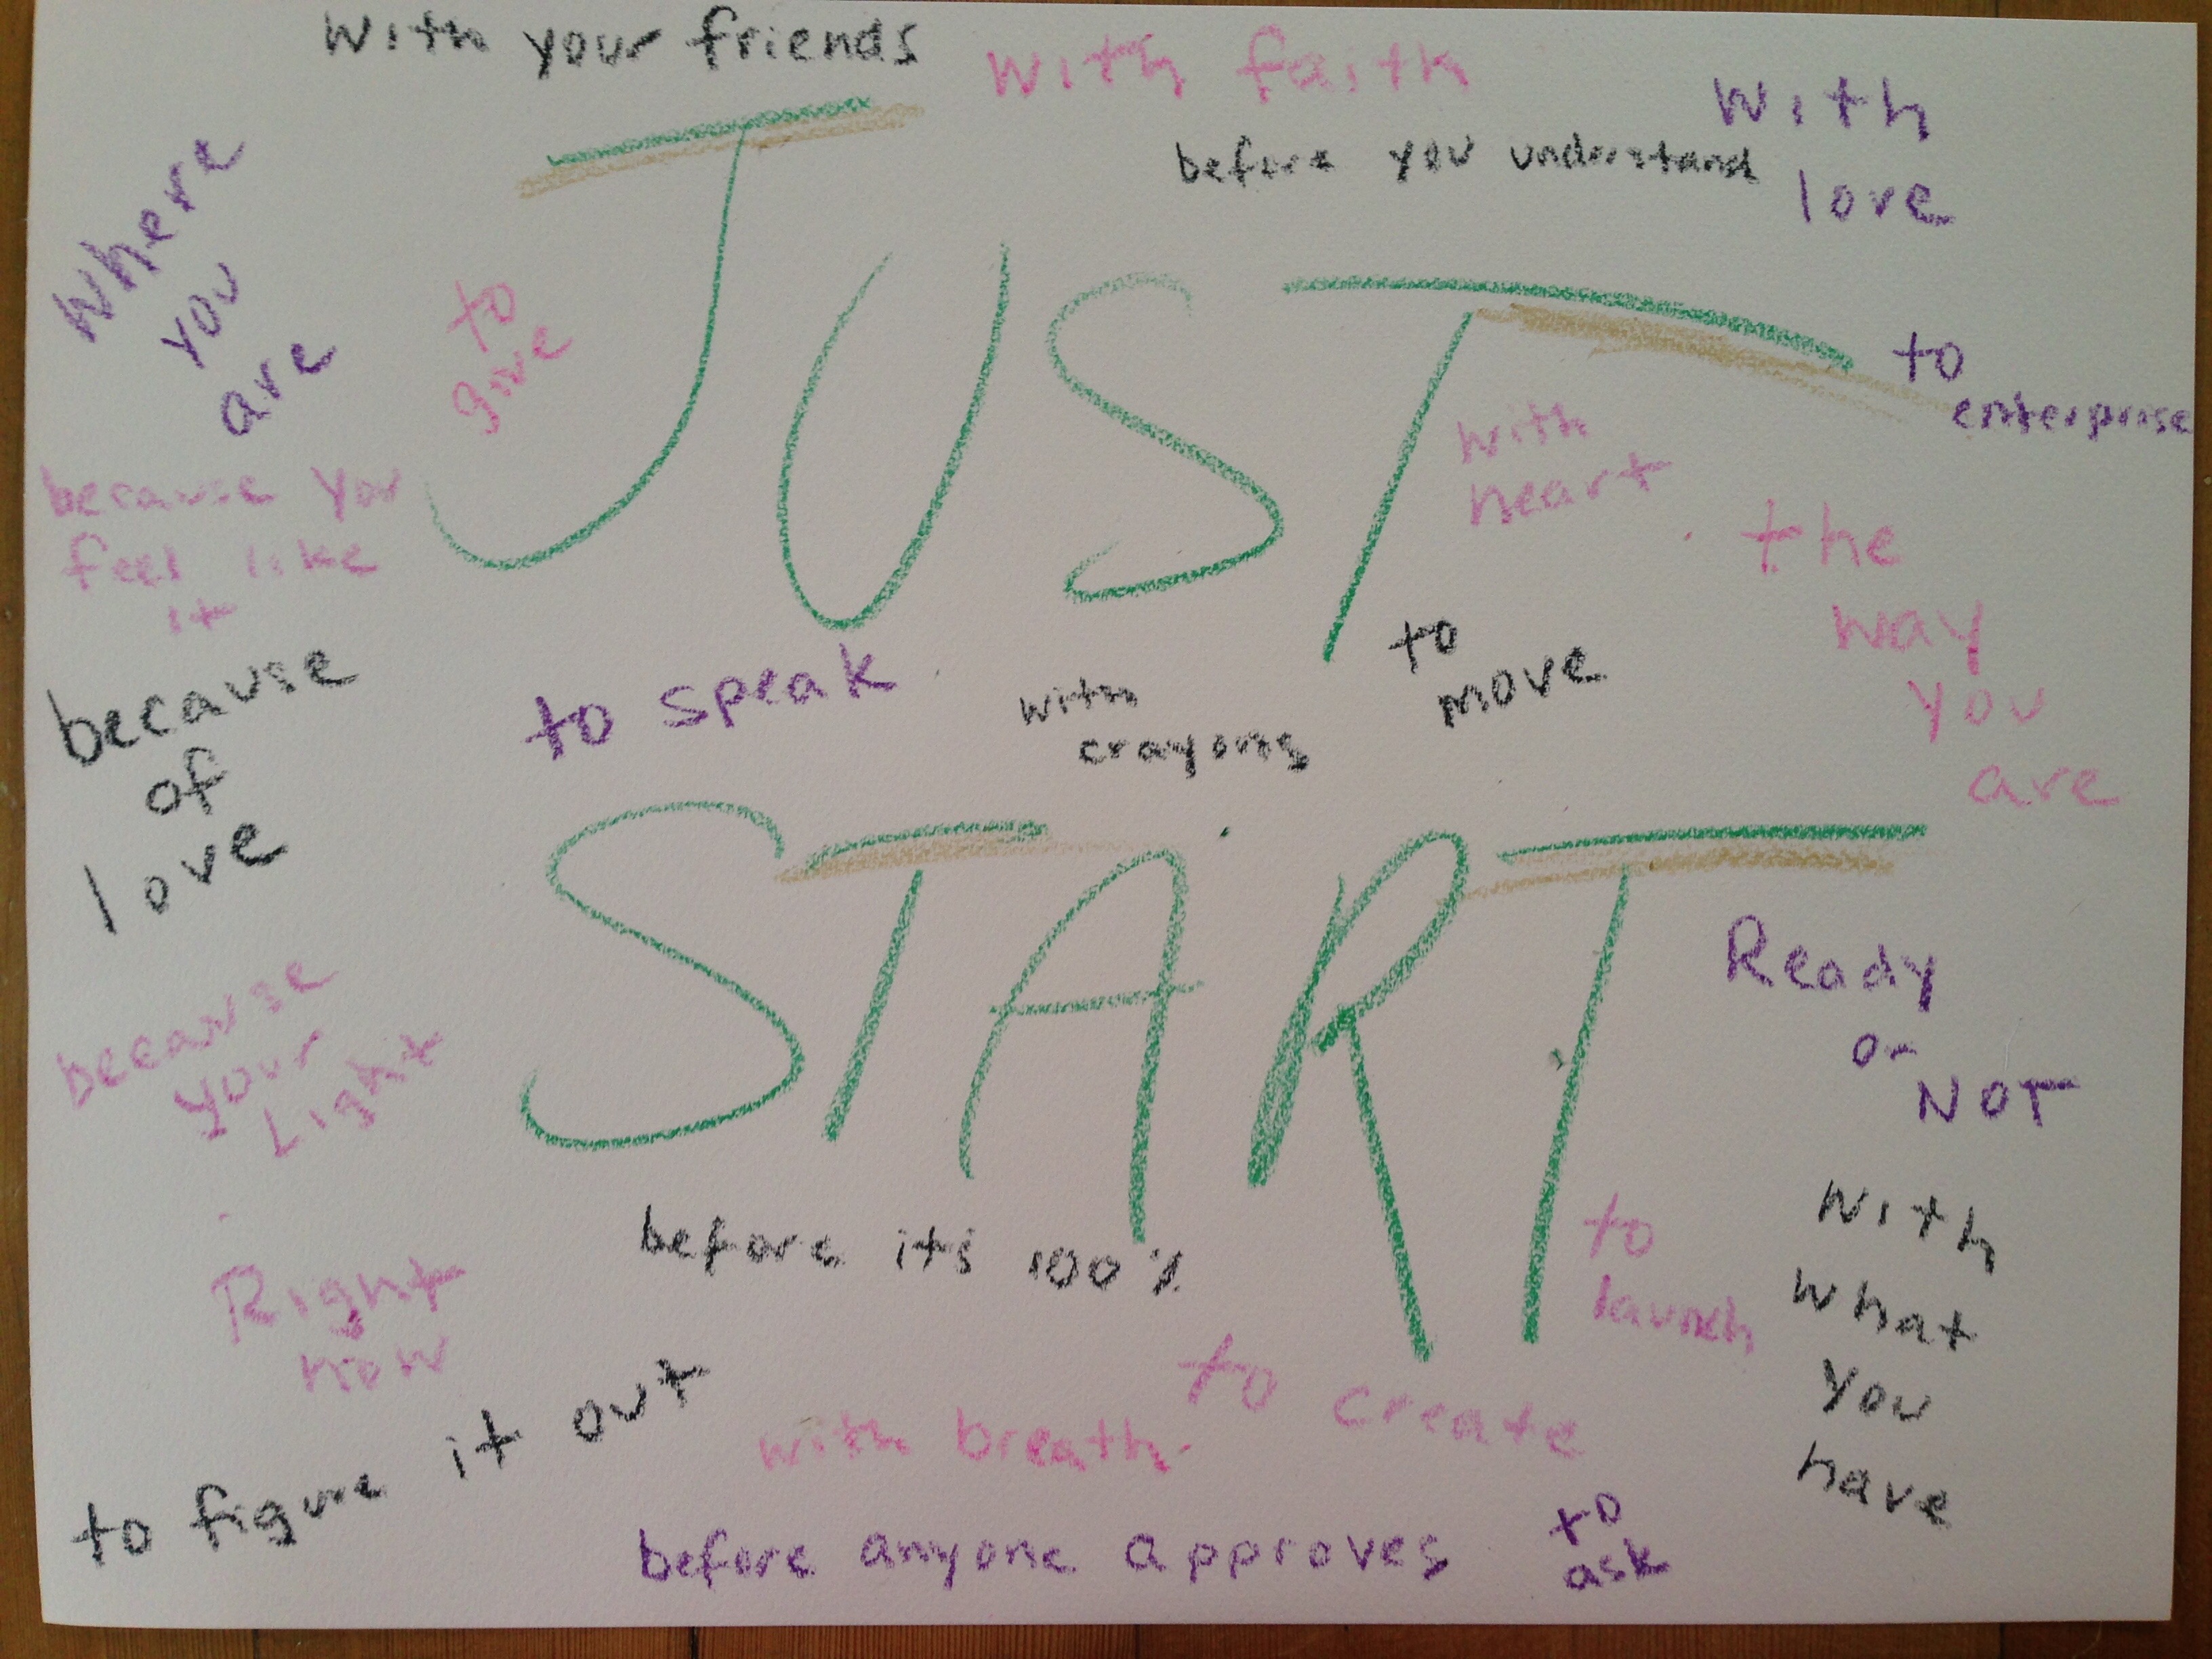 with your friends
with faith
with
love
before you understand
where
you
are
to
give
JUST
to
enterprise
with
heart
because you
feel like
it
the
way
you
are
because
of
love
to speak
with
crayons
to
move
START
Ready
or
NOT
because
your
Light
before its 100%
to
launch
with
what
you
have
Right
now
to figure it out
with breath
to create
before anyone approves
to
ask